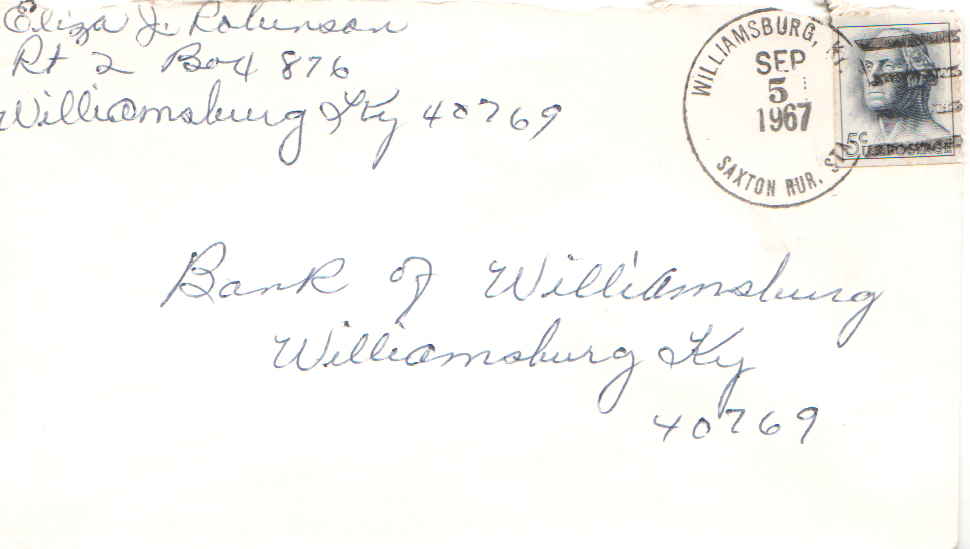 Eliza J. Robinson
Rt 2 Box 876
Williamsburg Ky 40769
WILLIAMSBURG, KY
SEP
5
1967
SAXTON RUR. STA
5¢
U.S. POSTAGE
Bank of Williamsburg
Williamsburg Ky
40769